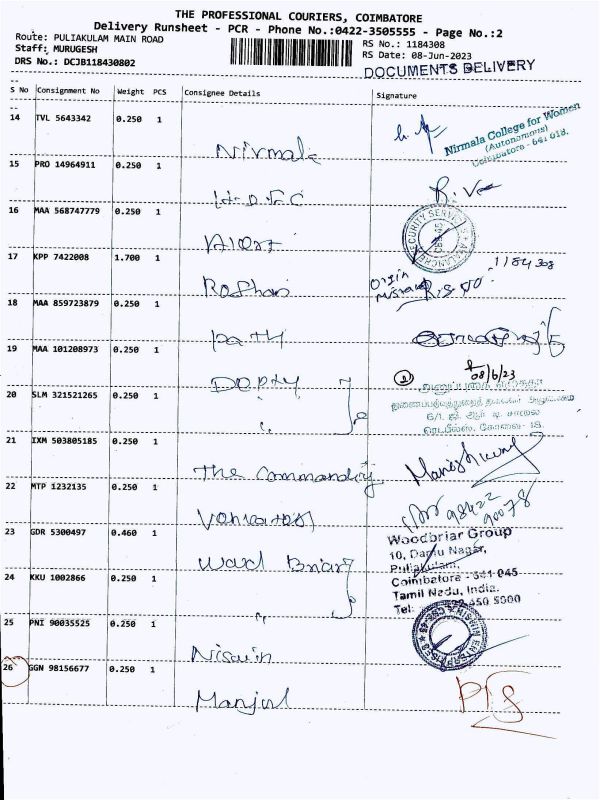 THE PROFESSIONAL COURIERS, COIMBATORE
Delivery Runsheet - PCR - Phone No.:0422-3505555 - Page No.:2
Route: PULIAKULAM MAIN ROAD
Staff: MURUGESH
DRS No.: DCJB118430802
RS No.: 1184308
RS Date: 08-Jun-2023
DOCUMENTS DELIVERY
S No Consignment No Weight PCS Consignee Details Signature
14 TVL 5643342 0.250 1
Nirmala
Nirmala College for Women
(Autonomous)
Coimbatore - 641 018.
15 PRO 14964911 0.250 1
H.D.F.C
16 MAA 568747779 0.250 1
SECURITY SERVICES
17 KPP 7422008 1.700 1
Roshan
Origin
1184308
18 MAA 859723879 0.250 1
Path
19 MAA 101208973 0.250 1
Depty
08/6/23
20 SLM 321521265 0.250 1
6/1,
கோவை - 18.
21 IXM 503805185 0.250 1
The Commanding
22 MTP 1232135 0.250 1
98422
90078
23 GDR 5300497 0.460 1
Wood Briar
Woodbriar Group
10, Damu Nagar,
Puliakulam,
Coimbatore - 641 045
Tamil Nadu, India.
Tel:
24 KKU 1002866 0.250 1
25 PNI 90035525 0.250 1
26 GGN 98156677 0.250 1